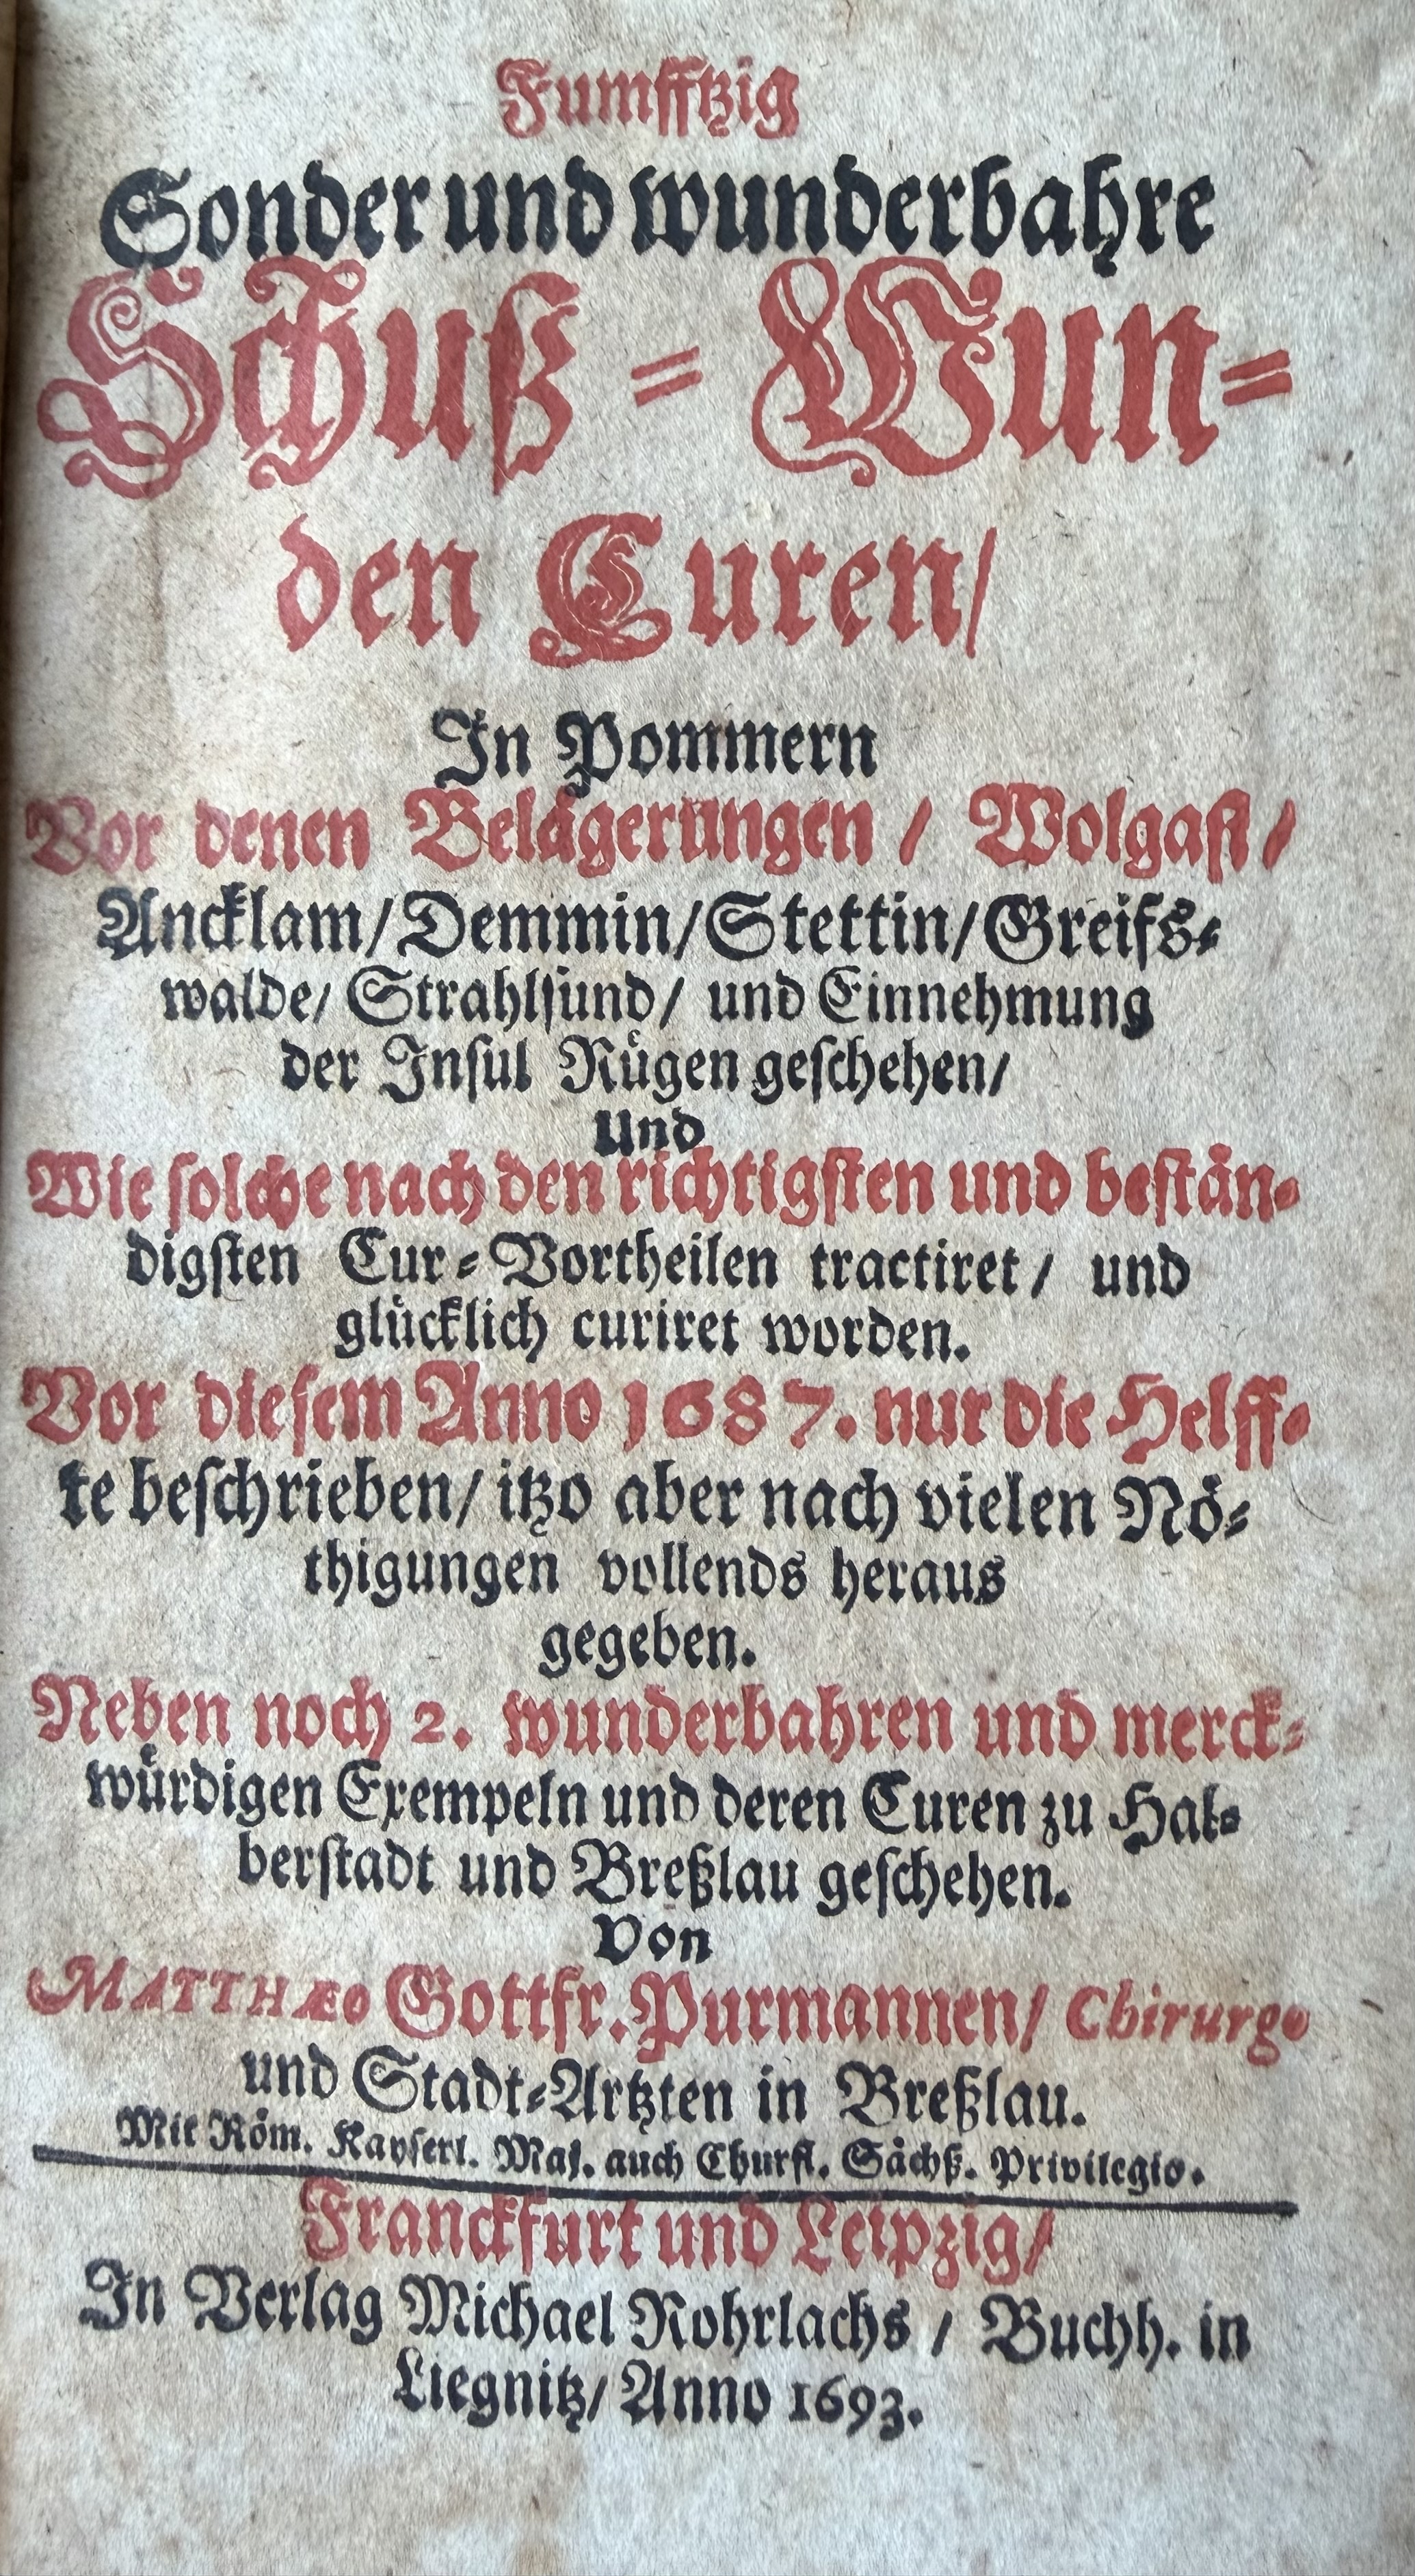 Fumfftzig
Sonder und wunderbahre
Schuß = Wun=
den Curen/
In Pommern
Vor denen Belägerungen / Wolgast /
Ancklam/Demmin/Stettin/Greifs=
walde/ Strahlsund/ und Einnehmung
der Insul Rügen geschehen/
Und
Wie solche nach den richtigsten und bestän=
digsten Cur=Vortheilen tractiret / und
glücklich curiret worden.
Vor diesem Anno 1687. nur die Helff=
te beschrieben/ itzo aber nach vielen Nö=
thigungen vollends heraus
gegeben.
Neben noch 2. wunderbahren und merck=
würdigen Exempeln und deren Curen zu Hal=
berstadt und Breßlau geschehen.
Von
MATTHÆO Gottfr. Purmannen/ Chirurgo
und Stadt=Artzten in Breßlau.
Mit Röm. Kayserl. Maj. auch Churfl. Sächß. Privilegio.
Franckfurt und Leipzig/
In Verlag Michael Rohrlachs / Buchh. in
Liegnitz/ Anno 1693.